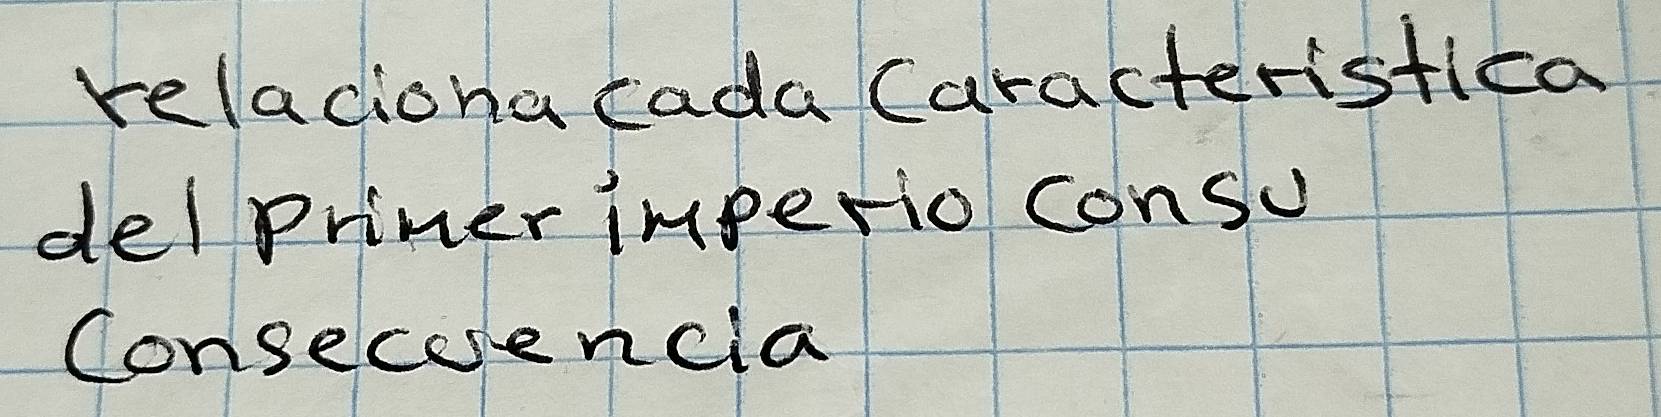 relaciona cada caracteristica
del primer imperio con su
consecuencia